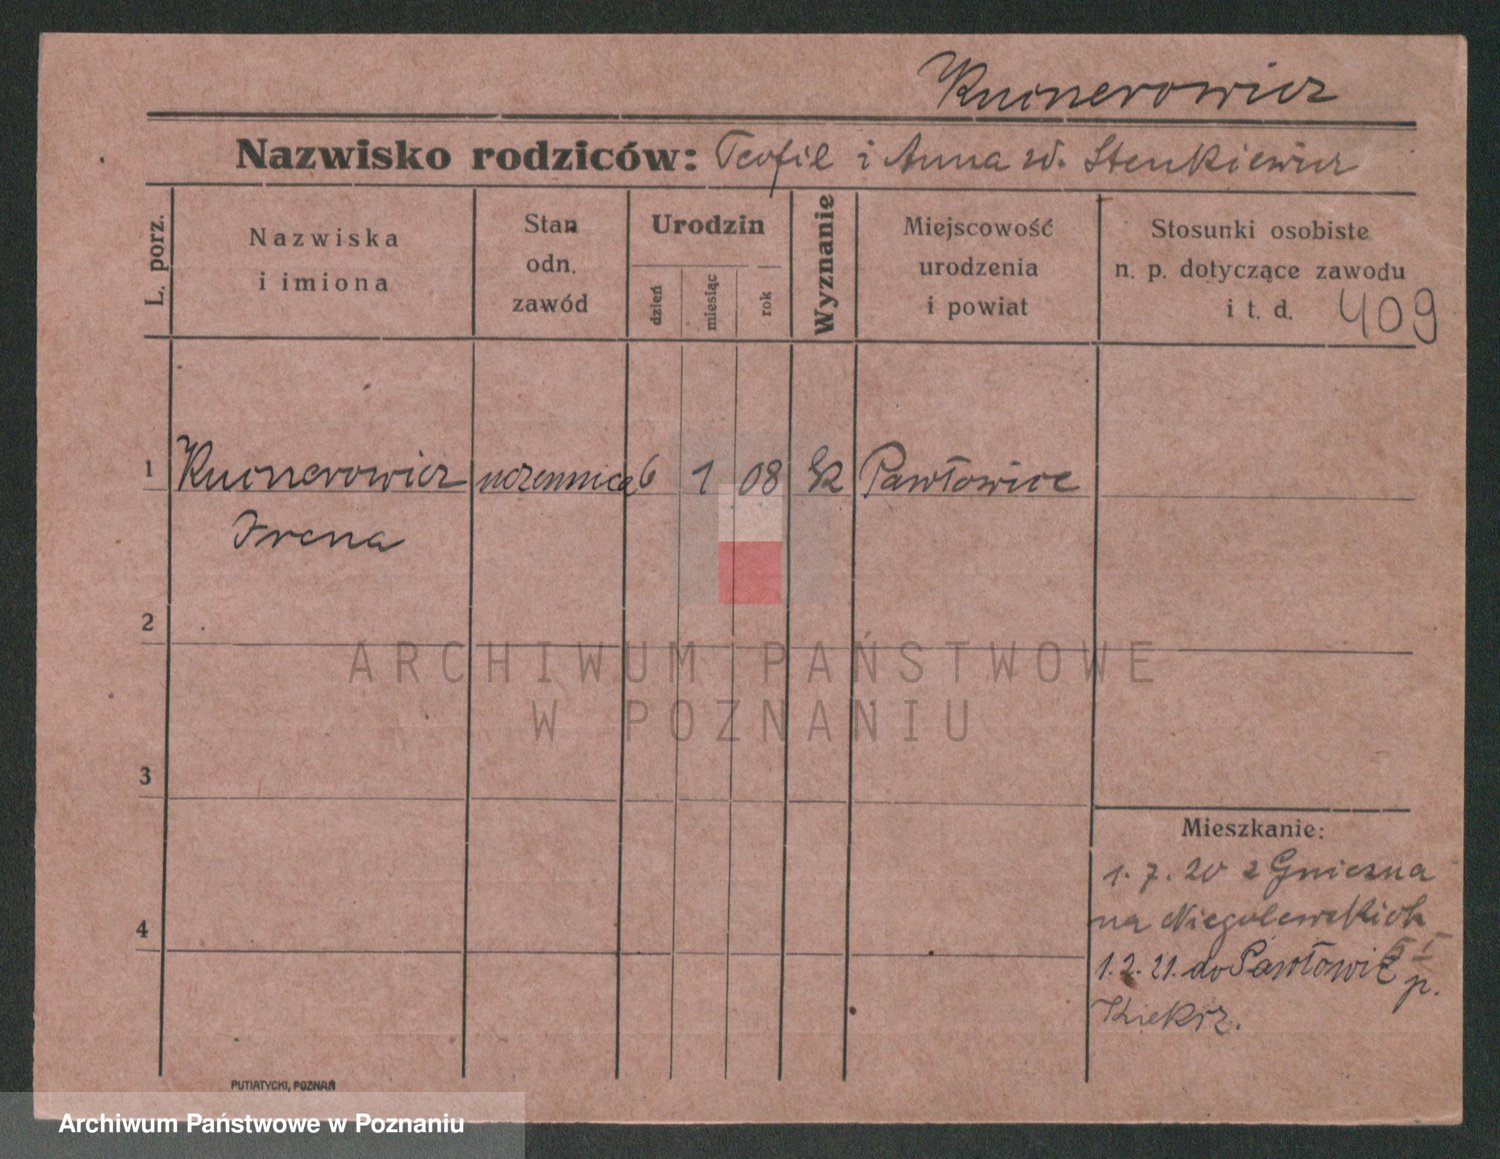 Kucnerowicz
Nazwisko rodziców: Teofil i Anna zd. Stenkiewicz
L. porz.
Nazwiska
i imiona
Stan
odn.
zawód
Urodzin
dzień
miesiąc
rok
Wyznanie
Miejscowość
urodzenia
i powiat
Stosunki osobiste
n. p. dotyczące zawodu
i t. d.
409
1 Kucnerowicz uczennica 6 1 08 rk Pawłowice
Irena
2
3
4
Mieszkanie:
1. 7. 20 z Gniezna
na Niegolewskich
1. 2. 21. do Pawłowic p.
Kiekrz.
PUTIATYCKI, POZNAŃ
ARCHIWUM PAŃSTWOWE
W POZNANIU
Archiwum Państwowe w Poznaniu